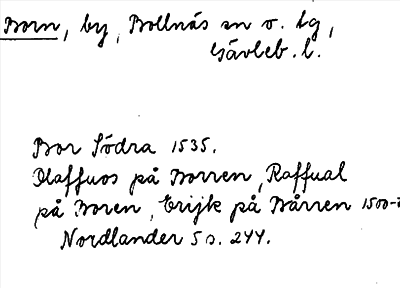 Born, by, Bollnäs sn o. tg,
Gävleb. l.
Bor Södra 1535.
Olaffuos på Borren, Raffual
på Boren, Erijk på Bårren 1500-
Nordlander 5 s. 244.